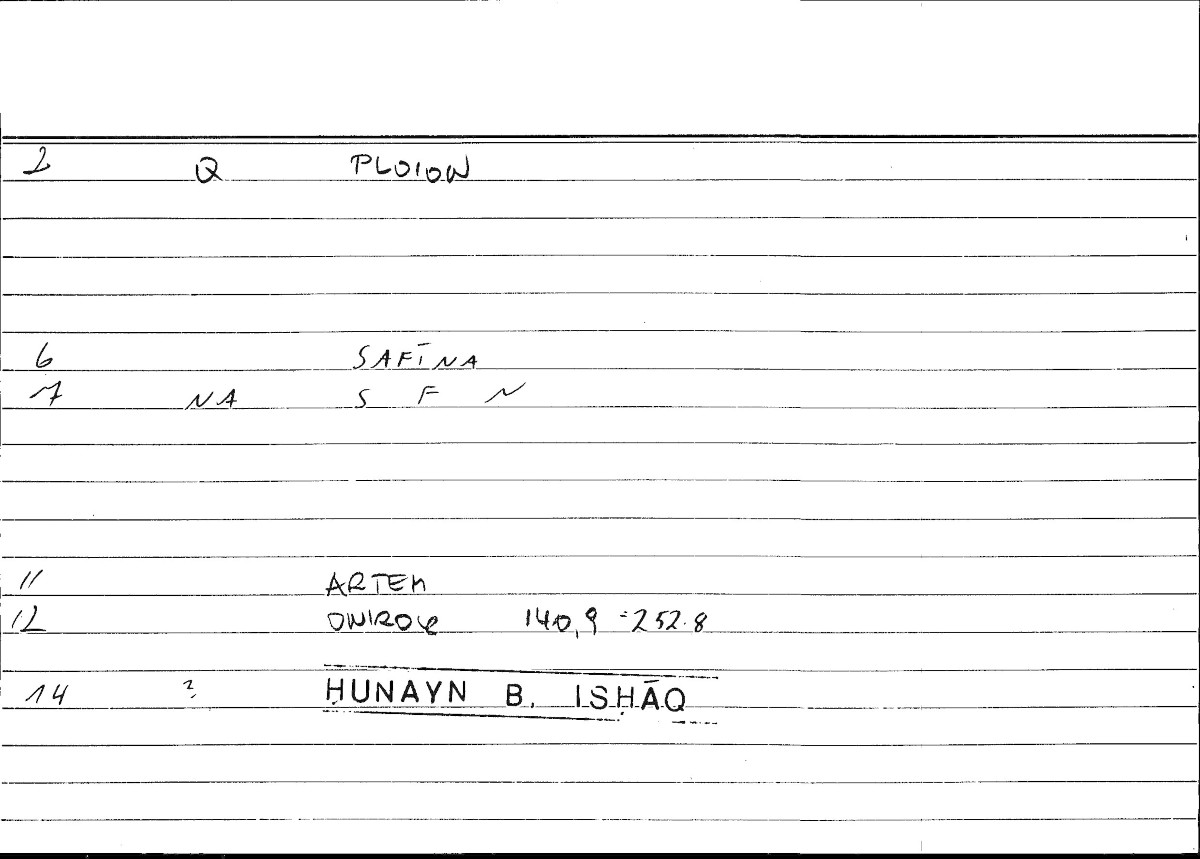 2 Q PLOION
6 SAFĪNA
7 NA S F N
11 ARTEM
12 ONIROCR 140,9 =252.8
14 ? ḤUNAYN B. ISḤĀQ